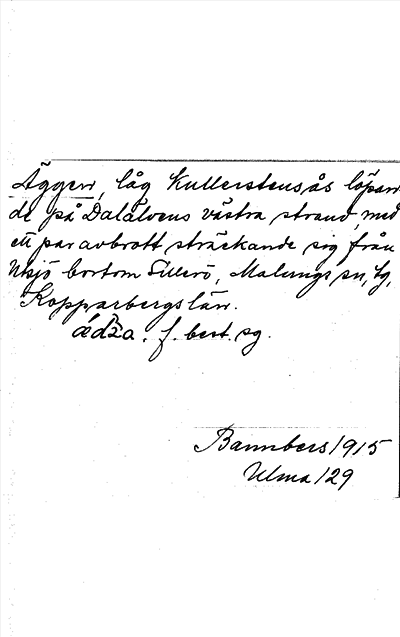 Äggen, låg kullerstensås löpan
de på Dalälvens västra strand, med
ett par avbrott, sträckande sig från
Utsjö bortom Sillerö, Malungs sn, lg,
Kopparbergs län.
f. best. sg.
Bannbers 1915
Ulma 129